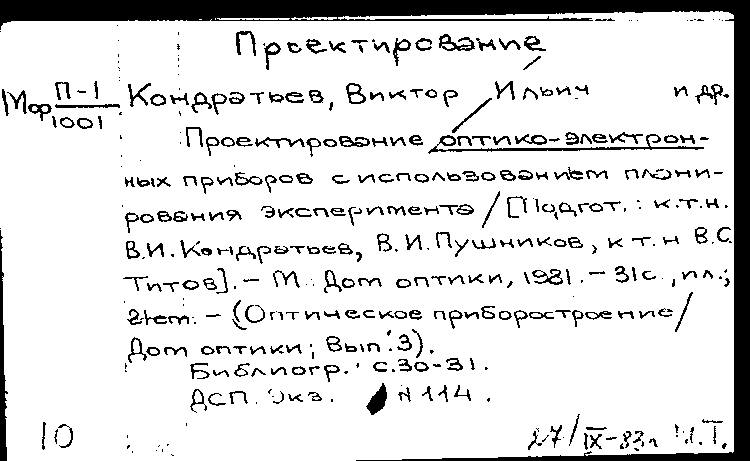 Проектирование
Мф П-1/1001 Кондратьев, Виктор Ильич и др.
Проектирование оптико-электрон-
ных приборов с использованием плани-
рования эксперимента / [Подгот.: к.т.н.
В.И. Кондратьев, В.И. Пушников, к т.н В.С.
Титов]. – М. Дом оптики, 1981. – 31с., ил.;
21см. – (Оптическое приборостроение /
Дом оптики; Вып. 3).
Библиогр.: с.30-31.
ДСП. Экз. N 114.
10 27/IX-83г И.Т.